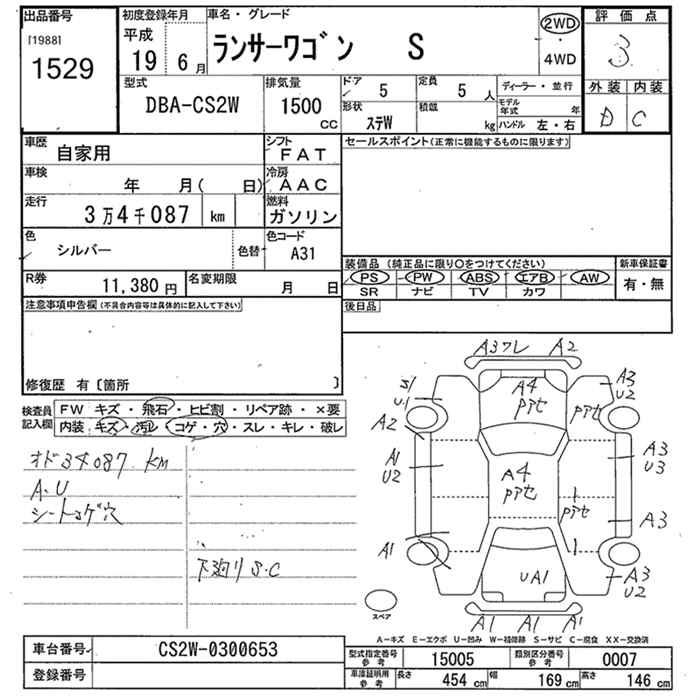 出品番号
[1988]
1529
初度登録年月
平成
19 6月
車名・グレード
ランサーワゴン S
2WD
・
4WD
評価点
3
外装 内装
D C
型式
DBA-CS2W
排気量
1500
CC
ドア
5
定員
5 人
形状
ステW
積載
kg
ディーラー・並行
モデル年式 年
ハンドル 左・右
車歴
自家用
シフト
FAT
車検
年 月( 日)
冷房
AAC
走行
3万4千087 km
燃料
ガソリン
色
シルバー
色替
色コード
A31
R券
11,380円
名変期限
月 日
セールスポイント(正常に機能するものに限ります)
装備品(純正品に限り○をつけてください)
新車保証書
PS PW ABS エアB AW
SR ナビ TV カワ
有・無
後日品
注意事項申告欄(不具合内容等は具体的に記入して下さい)
修復歴 有〔箇所 〕
検査員
記入欄
FW キズ・飛石・ヒビ割・リペア跡・×要
内装・キズ・汚レ・コゲ・穴・スレ・キレ・破レ
オド34087 KM
A.U
シートコゲ穴
下廻りS.C
A3ワレ A2
S1
U1
A4
PPアセ
A3
U2
A2
A1
U2
A4
PPアセ
A3
U3
PPアセ
A3
A1
UA1
A3
U2
A1 A1 A1
スペア
A－キズ E－エクボ U－凹み W－補修跡 S－サビ C－腐食 XX－交換済
車台番号
CS2W-0300653
登録番号
型式指定番号
参考
15005
類別区分番号
参考
0007
車庫証明用
参考
長さ 454 cm
幅 169 cm
高さ 146 cm